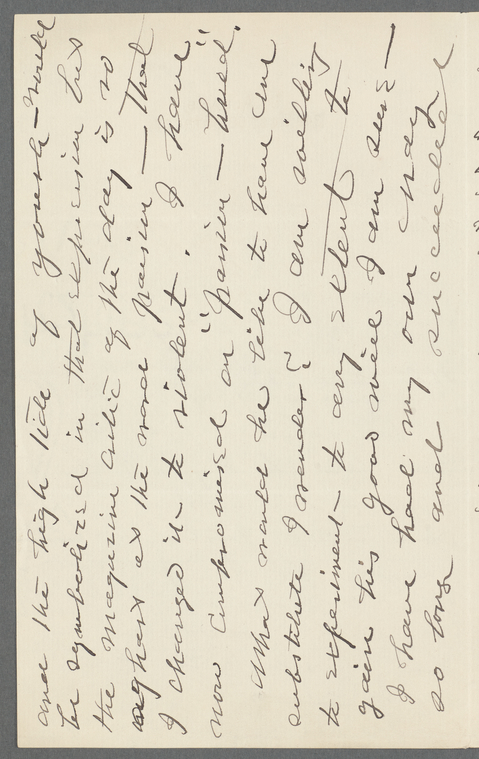 and the high tide of youth — would
be symbolized in that expression but
the magazine critic of the day is so
aghast at the word passion — that
I changed it — to violent. I have
now compromised on "passion — hued".
What would he like to have me
substitute I wonder? I am willing
to experiment — to any extent to
gain his good will I am sure —
I have had my own way
so long and succeeded